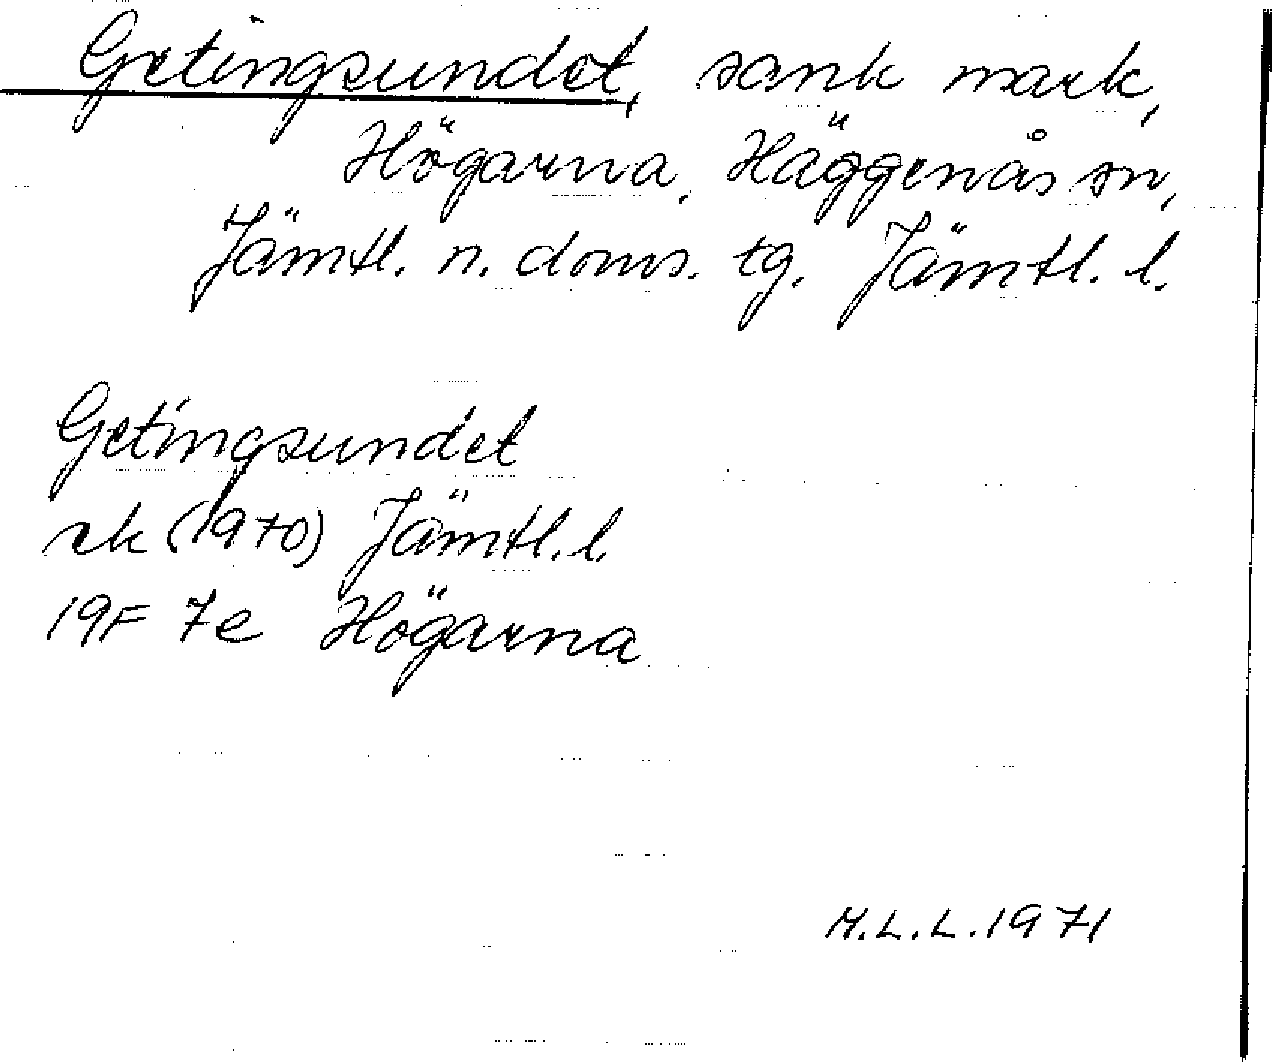 Getingsundet, sank mark,
Högarna, Häggenås sn,
Jämtl. n. doms. tg. Jämtl. l.
Getingsundet
ek (1970) Jämtl. l.
19F 7e Högarna
M.L.L. 1971